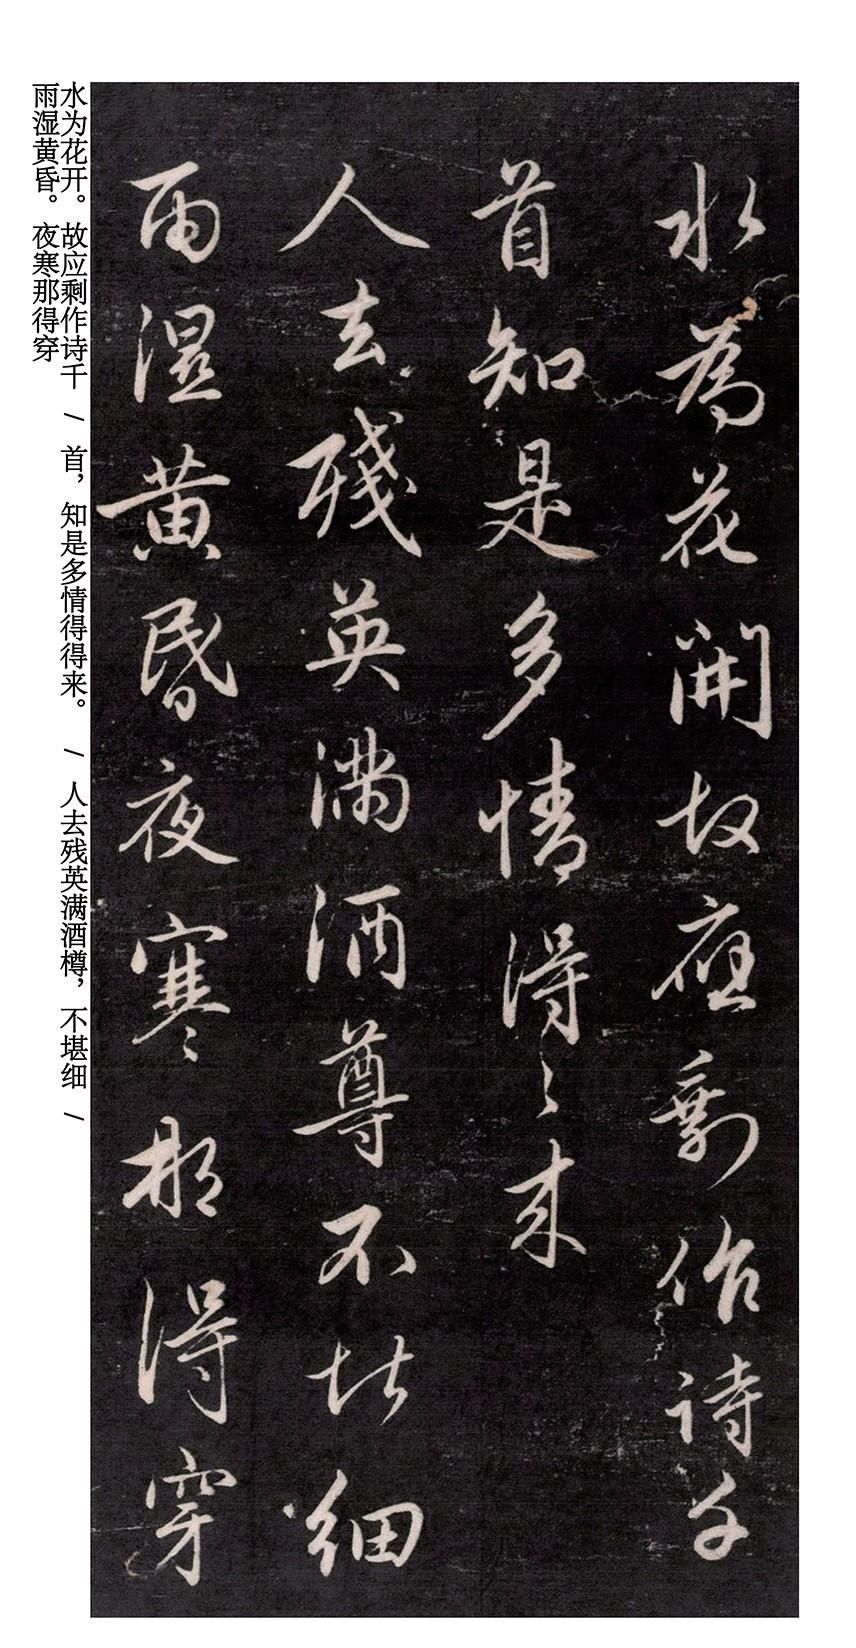 水為花開故應剩作诗千
首知是多情得〻来
人去殘英满酒尊不堪细
雨湿黄昏夜寒那得穿
水为花开。故应剩作诗千 / 首，知是多情得得来。 / 人去残英满酒樽，不堪细 /
雨湿黄昏。夜寒那得穿